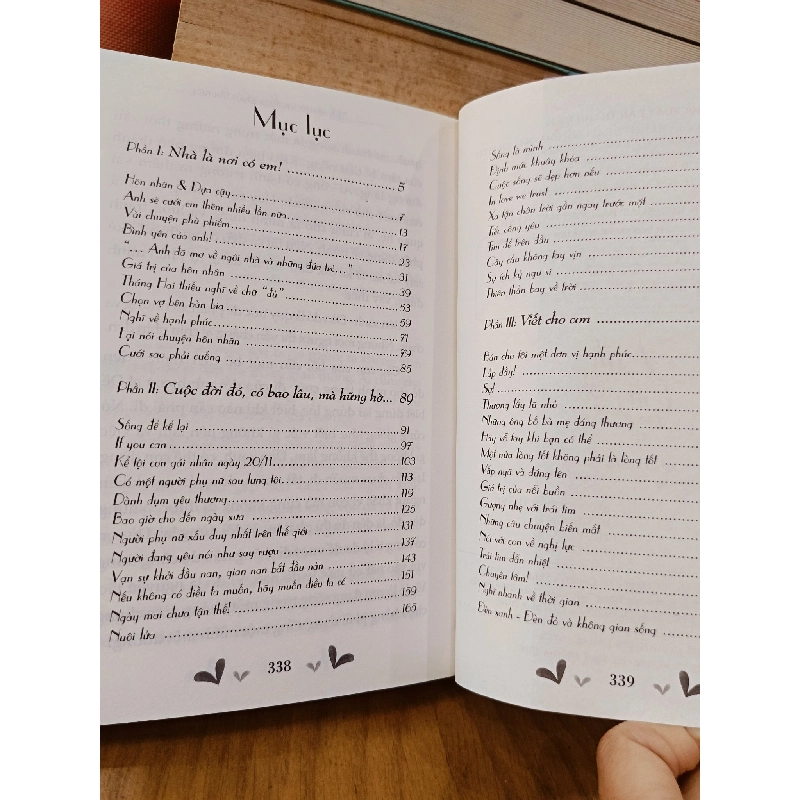 Mục lục
Phần I: Nhà là nơi có em! 5
Hôn nhân & Dựa cậy 7
Anh sẽ cưới em thêm nhiều lần nữa 13
Vài chuyện phù phiếm 17
Bình yên của anh! 23
"... Anh đã mơ về ngôi nhà và những đứa trẻ..." 31
Giá trị của hôn nhân 39
Tháng Hai thiếu nghĩ về chữ "đủ" 53
Chọn vợ bên hàn bia 59
Nghĩ về hạnh phúc 71
Lại nói chuyện hôn nhân 79
Cưới sao phải cuống 85
Phần II: Cuộc đời đó, có bao lâu, mà hững hờ... 89
Sống để kể lại 91
If you can 97
Kể tội con gái nhân ngày 20/11 103
Có một người phụ nữ sau lưng tôi 113
Dành dụm yêu thương 119
Bao giờ cho đến ngày xưa 125
Người phụ nữ xấu duy nhất trên thế giới 131
Người đang yêu nói như say rượu 137
Vạn sự khởi đầu nan, gian nan bắt đầu nản 143
Nếu không có điều ta muốn, hãy muốn điều ta có 151
Ngày mai chưa tận thế! 159
Nuôi lửa 165
338
Sống là mình
Định mức khuây khỏa
Cuộc sống sẽ đẹp hơn nếu
In love we trust
Xa tận chân trời gần ngay trước mặt
Tôi, công yêu
Tim để trên đầu
Cây cầu không tay vịn
Sự ích kỷ ngu si
Thiên thần bay về trời
Phần III: Viết cho em
Bán cho tôi một đơn vị hạnh phúc
Lấp đầy!
Sợ!
Thương lấy lá nhỏ
Những ông bố bà mẹ đáng thương
Hãy về tay khi bạn có thể
Một nửa lòng tốt không phải là lòng tốt
Vấp ngã và đứng lên
Giá trị của nỗi buồn
Gượng nhẹ với trái tim
Những câu chuyện biến mất
Nói với con về nghị lực
Trái tim dẫn nhiệt
Chuyên tâm!
Nghĩ nhanh về thời gian
Đèn xanh - Đèn đỏ và không gian sống
339